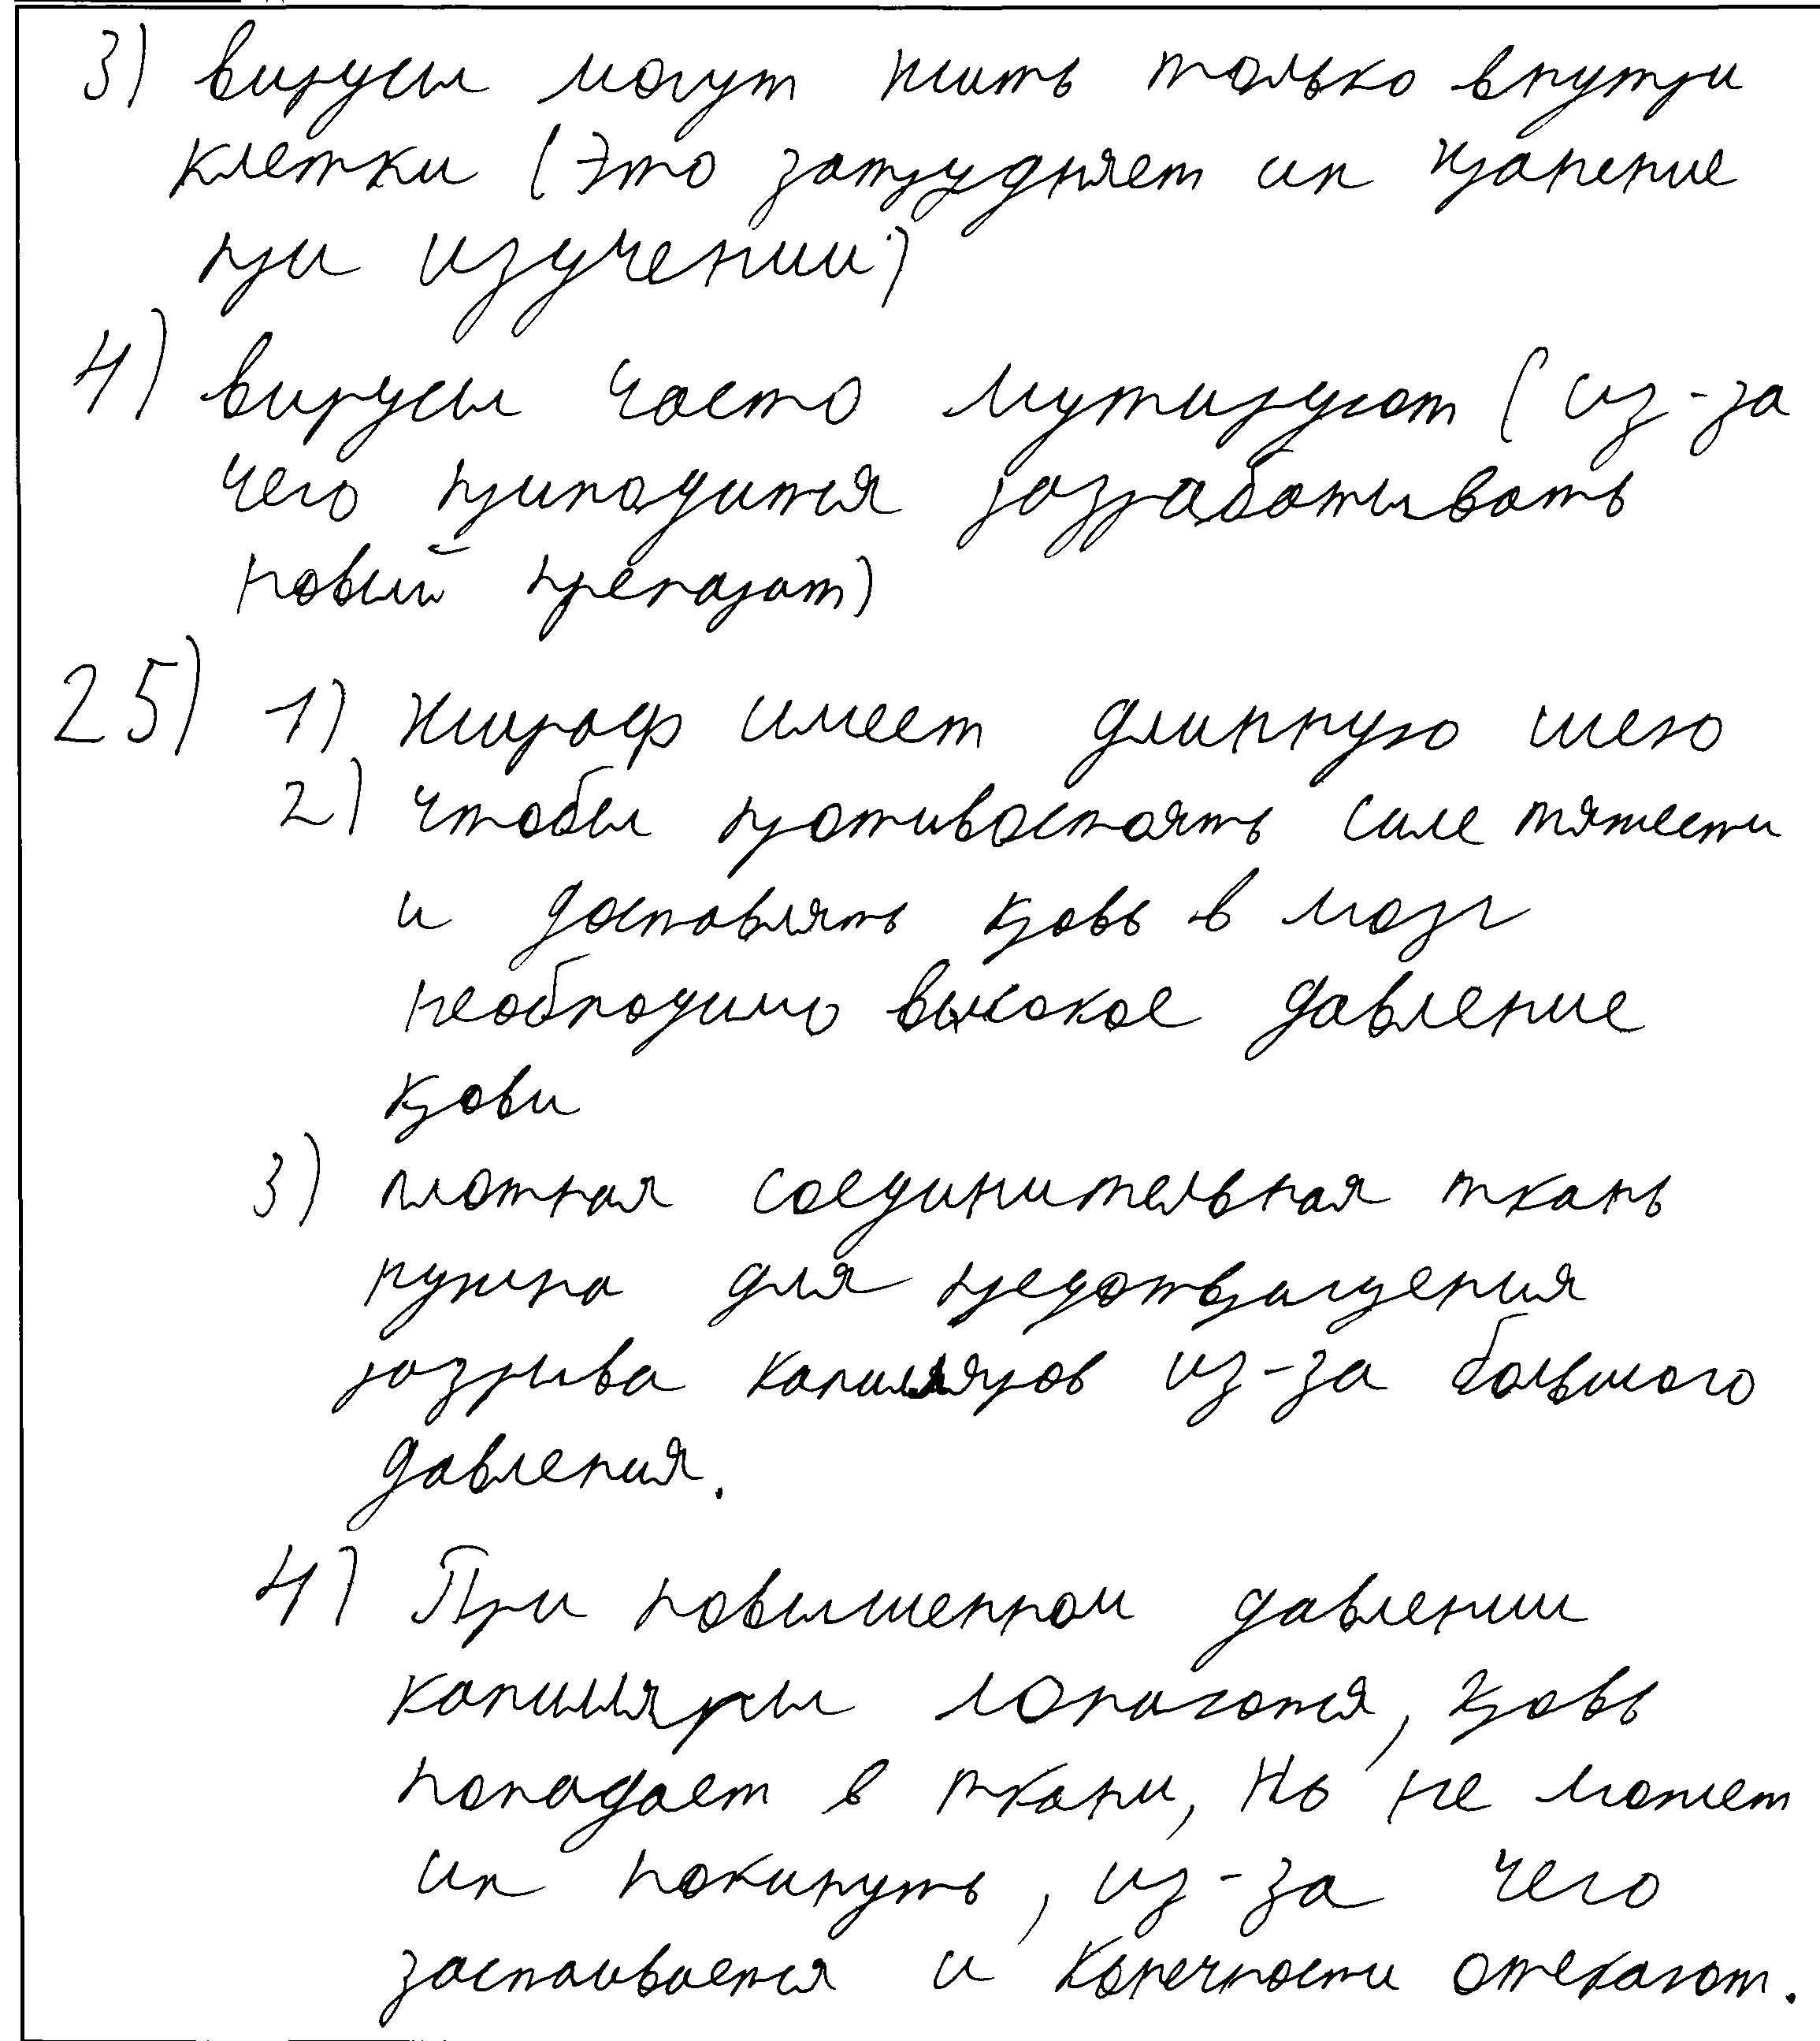 3) вирусы могут жить только внутри
клетки (Это затрудняет их хранение
при изучении)
4) вирусы часто мутируют (из-за
чего приходится разрабатывать
новый препарат)
25) 1) Жираф имеет длинную шею
2) чтобы противостоять силе тяжести
и доставлять кровь в мозг
необходимо высокое давление
крови
3) плотная соединительная ткань
нужна для предотвращения
разрыва капилляров из-за большого
давления.
4) При повышенном давлении
капилляры лопаются, кровь
попадает в ткани, но не может
их покинуть, из-за чего
застаивается и конечности отекают.